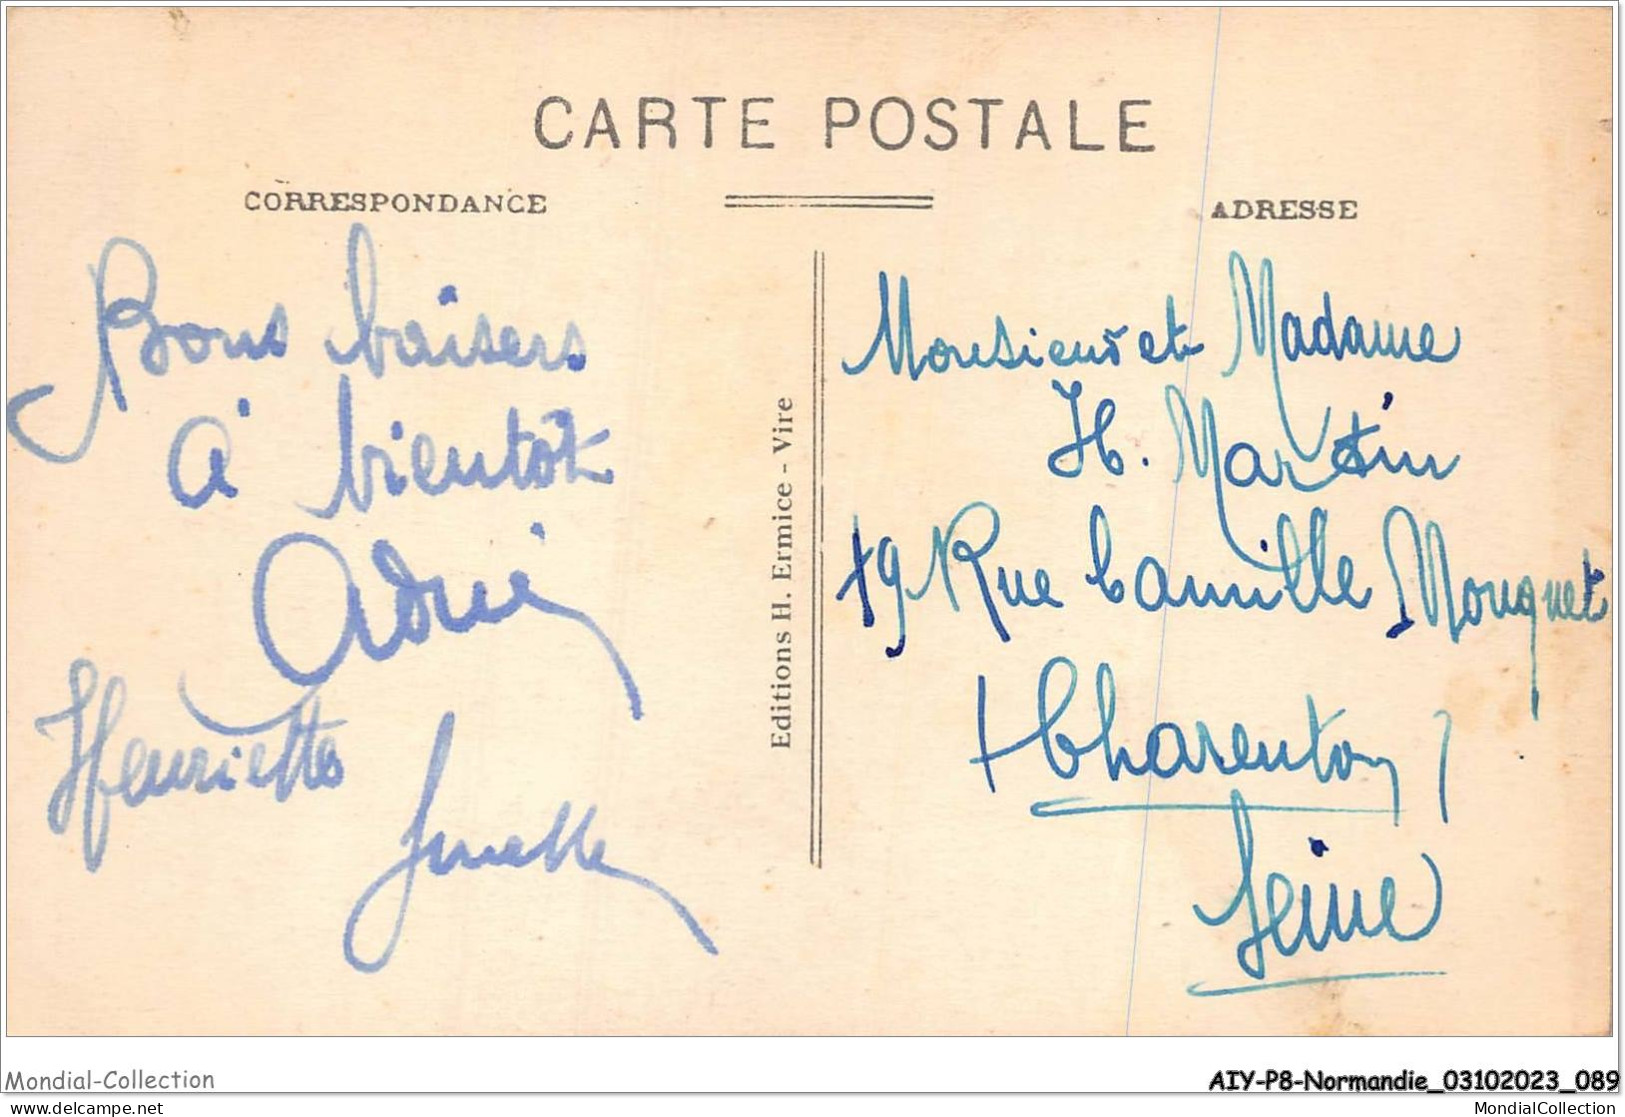 CARTE POSTALE
CORRESPONDANCE
ADRESSE
Bons baisers
à bientôt
Henriette
Editions H. Ermice - Vire
Monsieur et Madame
H. Martin
19 Rue Camille Mouquet
(Charenton)
Seine
Mondial-Collection
AIY-P8-Normandie_03102023_089
www.delcampe.net
MondialCollection